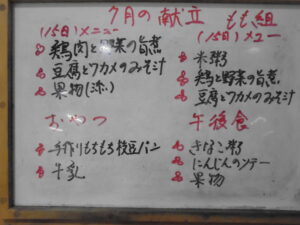 7月の献立 もも組
(15日)メニュー
鶏肉と野菜の旨煮
豆腐とワカメのみそ汁
果物
おやつ
手作りもちもち枝豆パン
牛乳
(15日)メニュー
米粥
鶏と野菜の旨煮
豆腐とワカメのみそ汁
午後食
きなこ粥
にんじんのソテー
果物